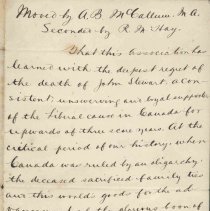 Moved by A. B. McCallum. M.A.
Seconded by R. McKay.
That this Association has
learned with the deepest regret of
the death of John Stewart. a con
sistent, unswerving and loyal supporter
of the Liberal cause in Canada for
upwards of three score years. At the
critical period of our history, when
Canada was ruled by an oligarchy
the deceased sacrificed family ties
and this world's goods for the ad
of the glorious boon of